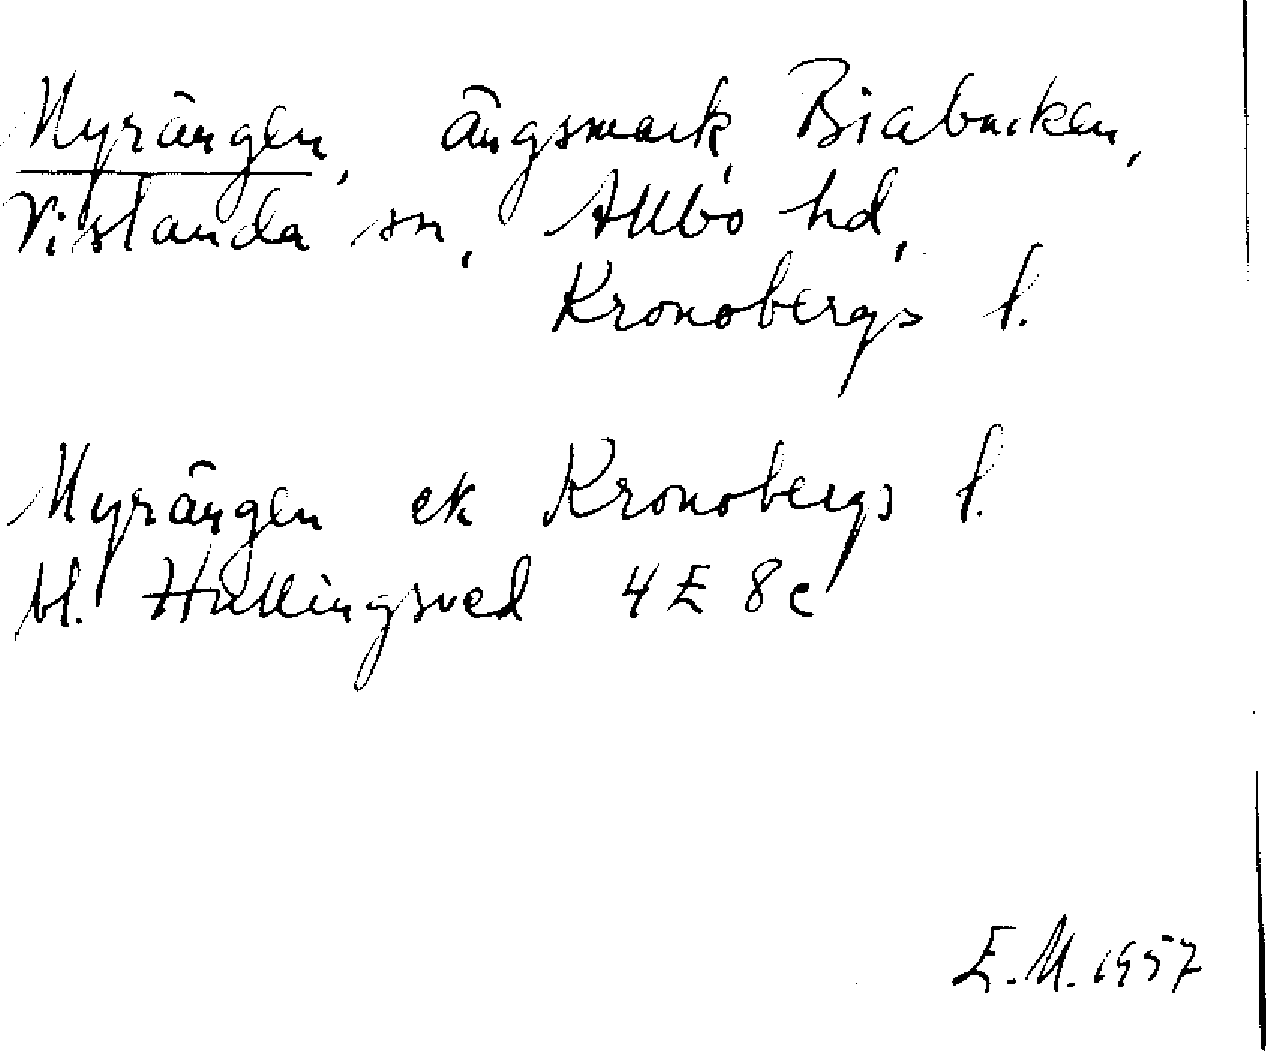 Myrängen, ängsmark, Biabacken,
Vislanda sn, Allbo hd,
Kronobergs l.
Myrängen ek Kronobergs l.
bl. Hullingsved 4E 8c
E.M. 1957